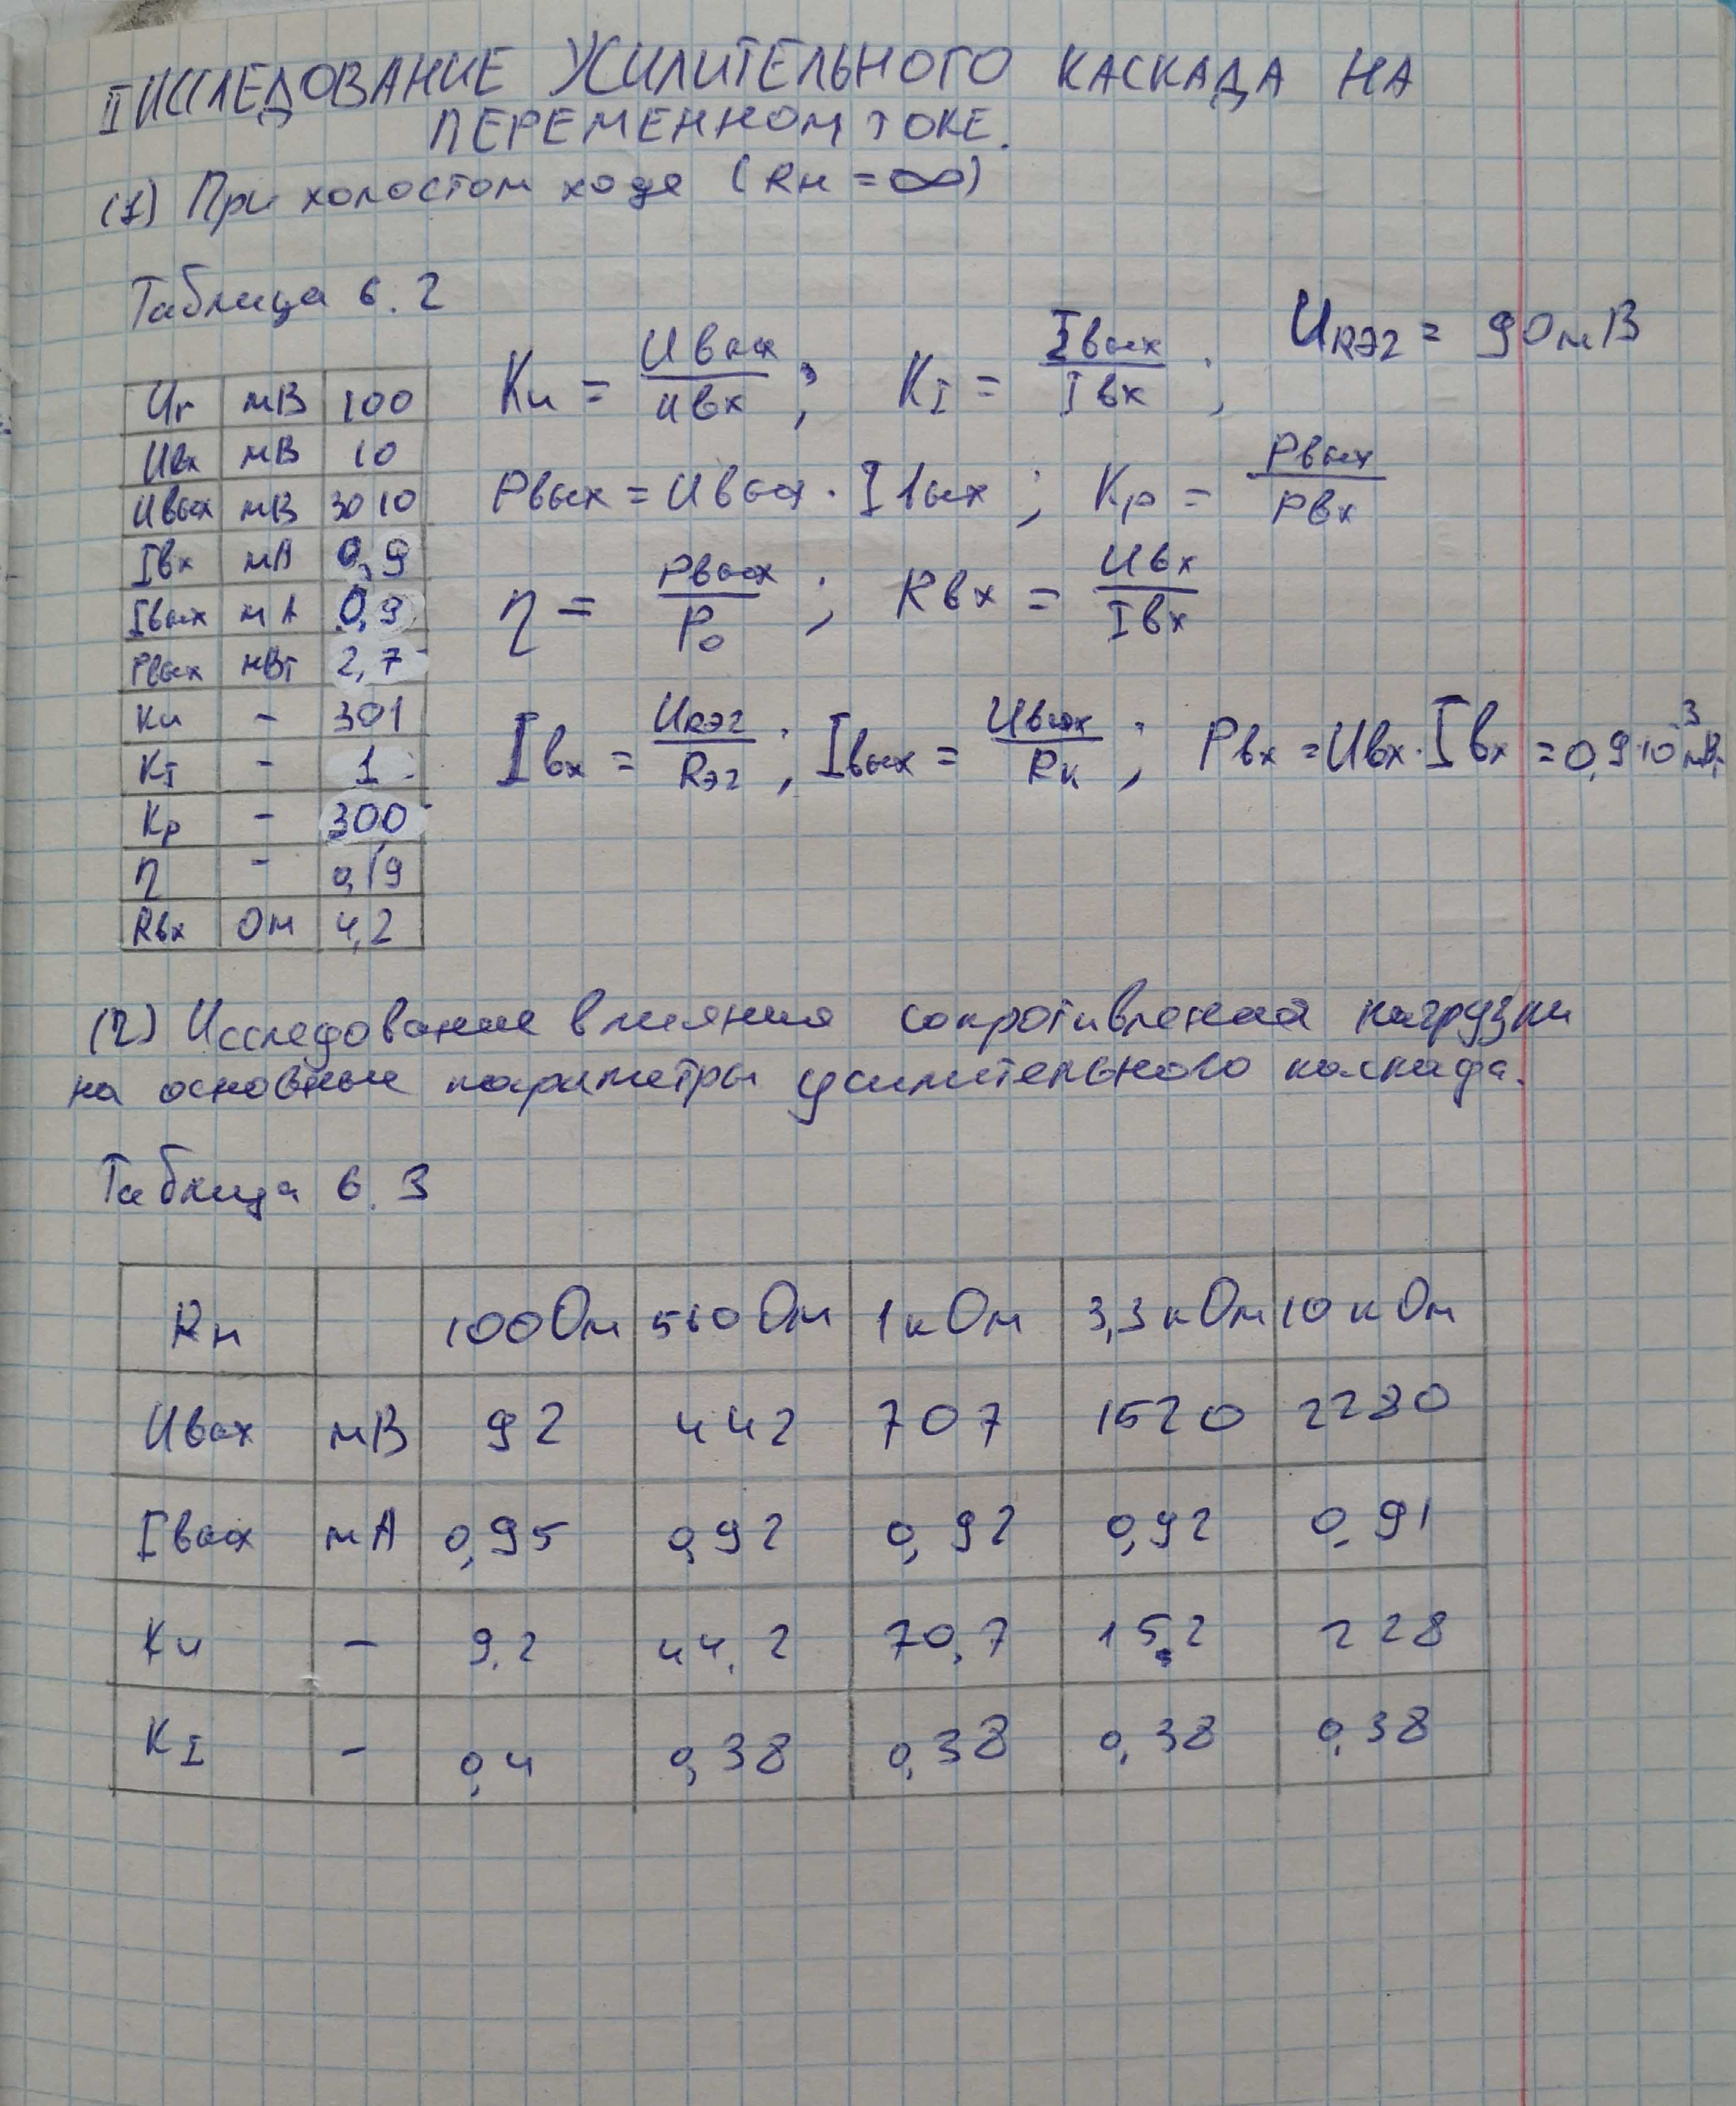 II ИССЛЕДОВАНИЕ УСИЛИТЕЛЬНОГО КАСКАДА НА
ПЕРЕМЕННОМ ТОКЕ.
(1) При холостом ходе (Rн = ∞)
Таблица 6.2
Uг мВ 100
Uвх мВ 10
Uвых мВ 3010
Iвх мА 0,9
Iвых мА 0,9
Pвых мВт 2,7
Кu - 301
КI - 1
Кр - 300
η - 0,19
Rвх Ом 4,2
Кu = Uвых / Uвх ; КI = Iвых / Iвх ; URэ2 = 90мВ
Pвых = Uвых · Iвых ; Кр = Рвых / Рвх
η = Рвых / Р0 ; Rвх = Uвх / Iвх
Iвх = URэ2 / Rэ2 ; Iвых = Uвых / Rк ; Рвх = Uвх · Iвх = 0,9·10³ мВт
(2) Исследование влияния сопротивления нагрузки
на основные параметры усилительного каскада.
Таблица 6.3
Rн 100 Ом 510 Ом 1 кОм 3,3 кОм 10 кОм
Uвых мВ 92 442 707 1520 2280
Iвых мА 0,95 0,92 0,92 0,92 0,91
Кu - 9,2 44,2 70,7 15,2 228
КI - 0,4 0,38 0,38 0,38 0,38